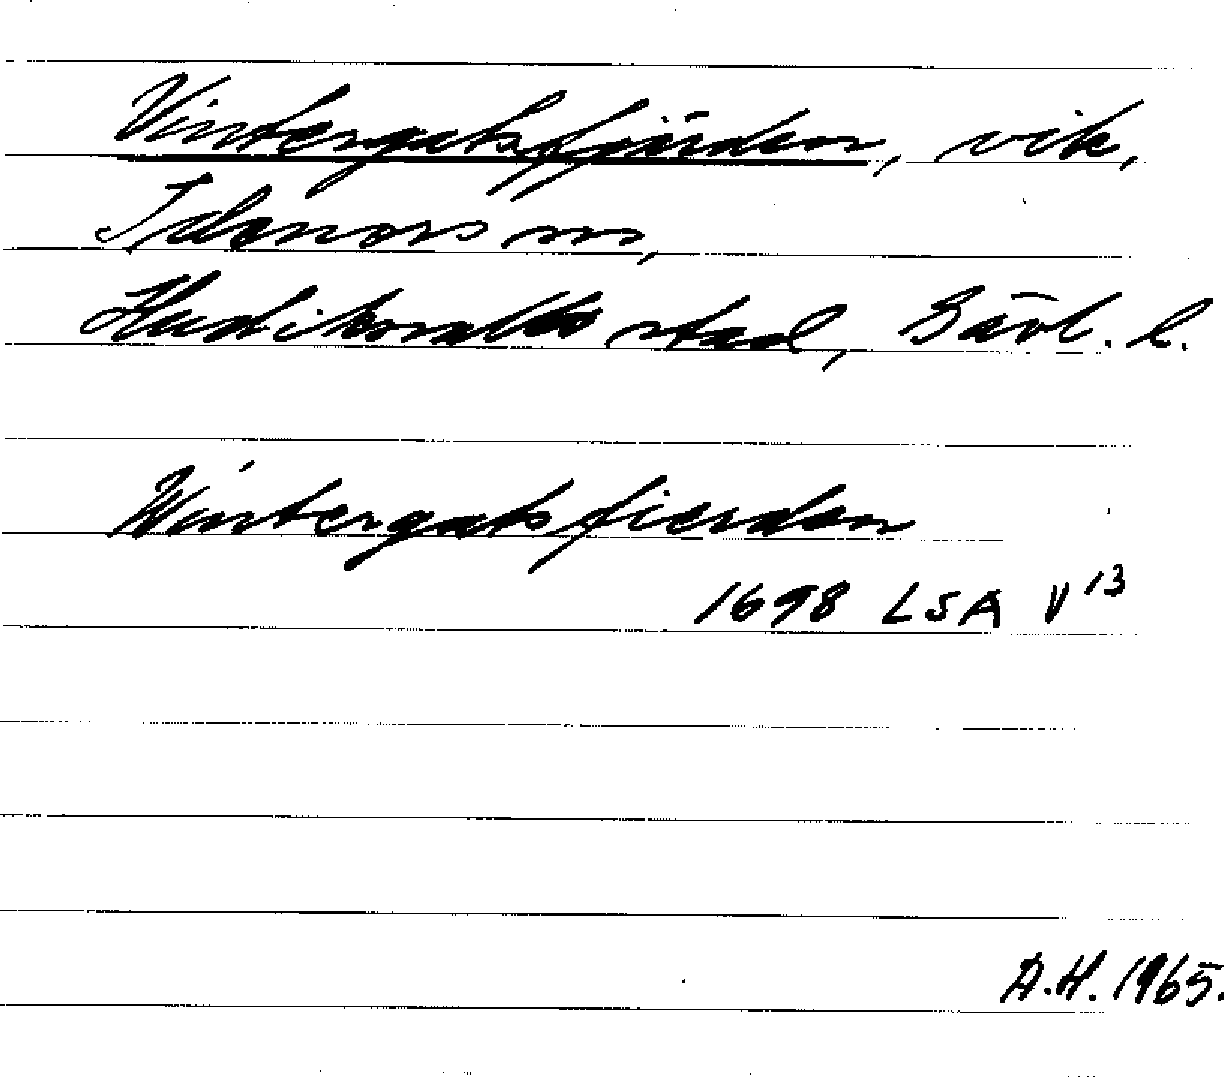 Vintergatsfjärden, vik,
Idenors sn,
Hudiksvalls stad, Gävl. l.
Wintergatsfierden
1698 LSA V 13
A.H. 1965.